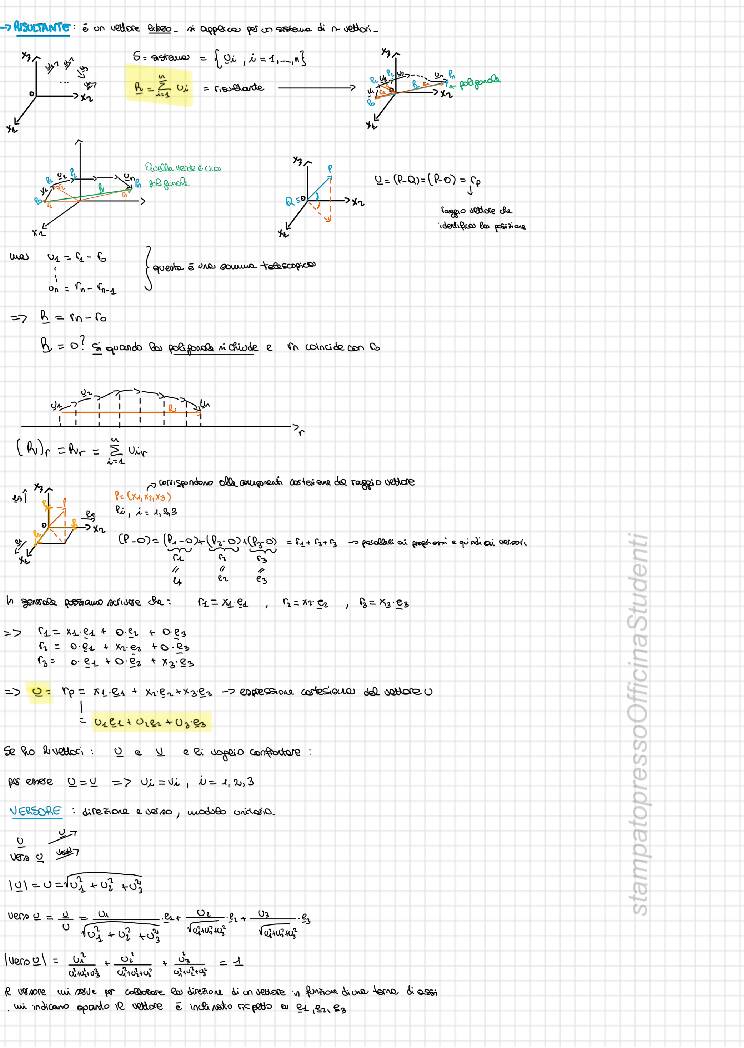 → RISULTANTE: è un vettore libero. si applica per un sistema di n vettori.
S = sistema = {u̲i, i = 1,...,n}
R̲ = Σ u̲i = risultante → poligonale
i=1 n
poligonale
U̲ = (P-Q) = (P-O) = rp
raggio vettore che
identifica la posizione
ma u1 = r1 - r0
un = rn - rn-1
questa è una somma telescopica
=> R̲ = rn - r0
R̲ = 0? Sì quando la poligonale si chiude e rn coincide con r0
(R)r = Rr = Σ uir
i=1 n
corrispondono alle componenti cartesiane del raggio vettore
P = (x1, x2, x3)
Pi, i = 1,2,3
(P-O) = (P1-O) + (P2-O) + (P3-O) = r1 + r2 + r3 → paralleli ai e quindi ai versori
r1 r2 r3
e1 e2 e3
In generale possiamo scrivere che: r1 = x1·e1, r2 = x2·e2, r3 = x3·e3
=> r1 = x1·e1 + 0·e2 + 0·e3
r2 = 0·e1 + x2·e2 + 0·e3
r3 = 0·e1 + 0·e2 + x3·e3
=> U̲ = rp = x1·e1 + x2·e2 + x3·e3 → espressione cartesiana del vettore U
= U1e1 + U2e2 + U3·e3
Se ho 2 vettori: U̲ e V̲ e li voglio confrontare:
per essere U̲ = V̲ => Ui = Vi, i = 1,2,3
VERSORE: direzione e verso, modulo unitario.
U̲
vers U̲
|U̲| = U = √U1² + U2² + U3²
vers U̲ = U̲/U = U1/√U1²+U2²+U3² · e1 + U2/√U1²+U2²+U3² · e2 + U3/√U1²+U2²+U3² · e3
|vers U̲| = U1²/U1²+U2²+U3² + U2²/U1²+U2²+U3² + U3²/U1²+U2²+U3² = 1
Il versore mi serve per calcolare la direzione di un vettore in funzione di una terna di assi
. mi indicano quanto il vettore è inclinato rispetto a e1, e2, e3
stampatopressoOfficinaStudenti